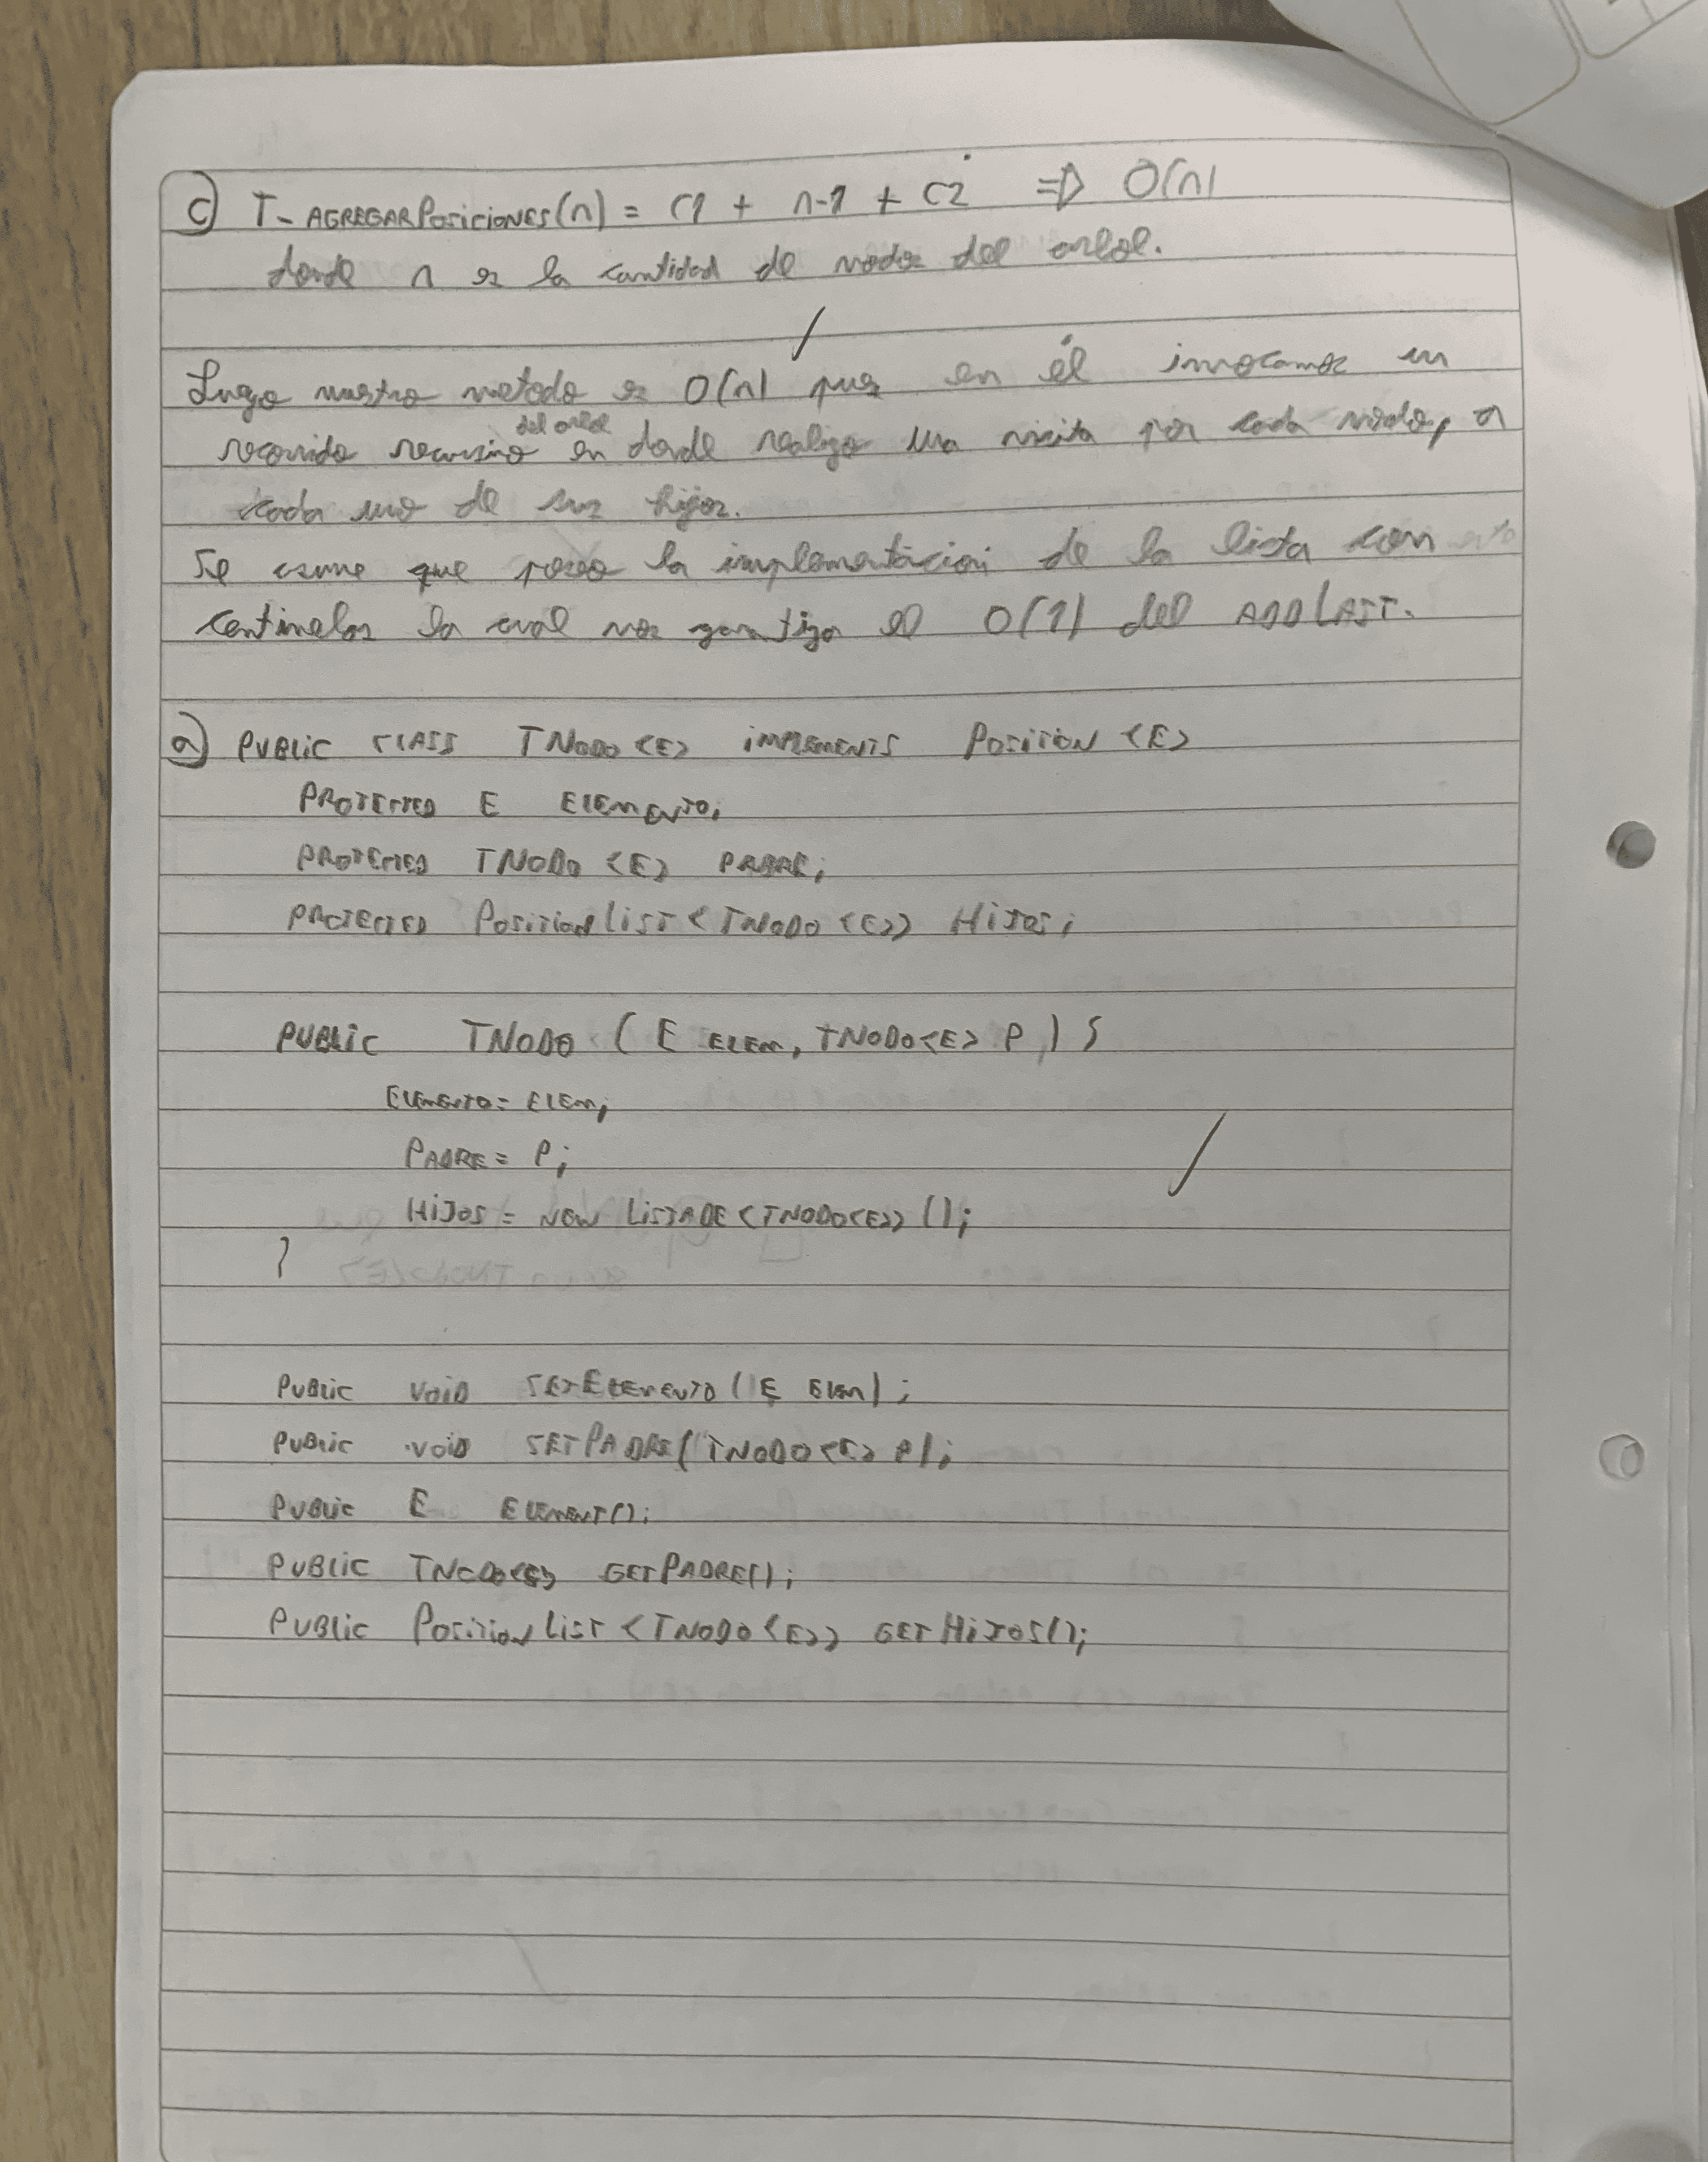 c) T_AGREGARPosiciones(n) = C1 + n-1 + C2 => O(n)
donde n es la cantidad de nodos del arbol.
Luego nuestro metodo es O(n) pues en él invocamos un
recorrido recursivo del arbol en donde realizo una visita por cada nodo, a
cada uno de sus hijos.
Se asume que poseo la implementación de la lista con
centinelas la cual nos garantiza el O(1) del ADDLAST.
a) PUBLIC CLASS TNODO<E> IMPLEMENTS POSITION<E>
PROTECTED E ELEMENTO;
PROTECTED TNODO<E> PADRE;
PROTECTED PositionList<TNODO<E>> HIJOS;
PUBLIC TNODO(E ELEM, TNODO<E> P){
ELEMENTO = ELEM;
PADRE = P;
HIJOS = NEW LISTADE<TNODO<E>>();
}
PUBLIC VOID SETELEMENTO(E ELEM);
PUBLIC VOID SETPADRE(TNODO<E> P);
PUBLIC E ELEMENT();
PUBLIC TNODO<E> GETPADRE();
PUBLIC PositionList<TNODO<E>> GETHIJOS();